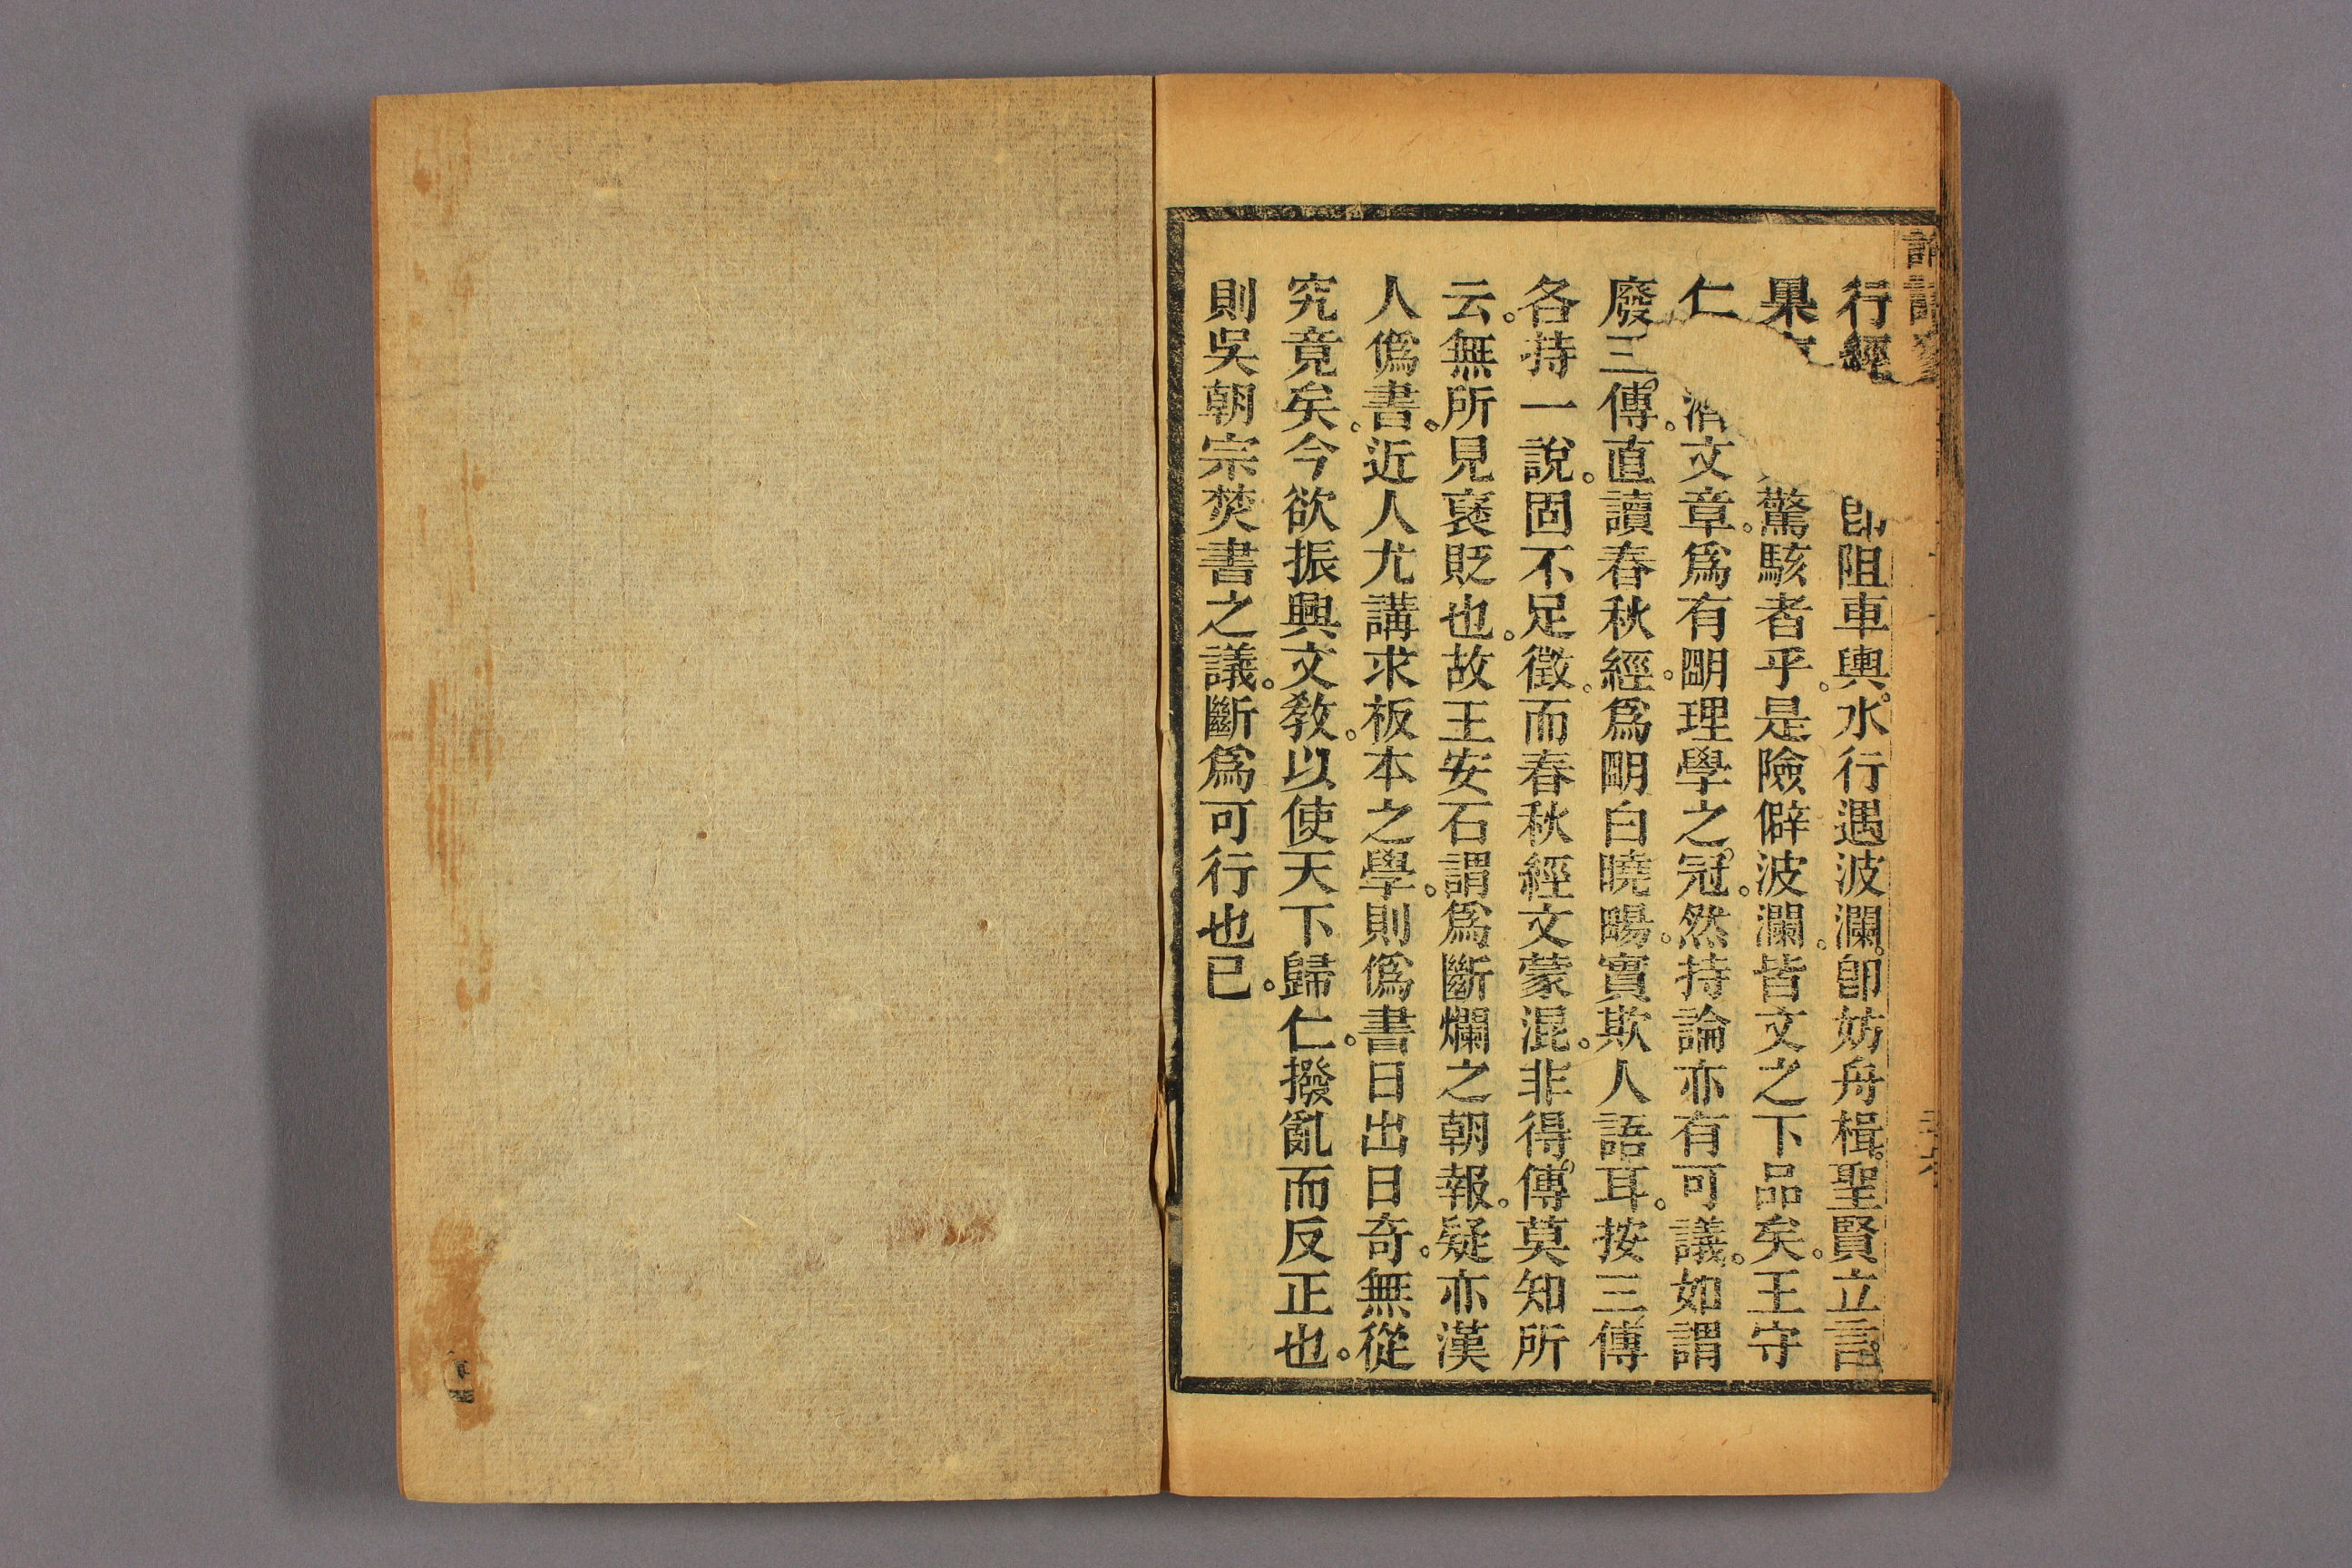 行經卽阻車輿。水行遇波瀾。卽妨舟楫。聖賢立言。
果驚駭者乎。是險僻波瀾。皆文之下品矣。王守
仁文章。爲有朙理學之冠。然持論亦有可議。如謂
廢三傳。直讀春秋經。爲朙白曉暢。實欺人語耳。按三傳
各持一說。固不足徵。而春秋經文蒙混。非得傳。莫知所
云。無所見褒貶也。故王安石謂爲斷爛之朝報。疑亦漢
人僞書。近人尤講求板本之學。則僞書日出日奇。無從
究竟矣。今欲振興文敎。以使天下歸仁。撥亂而反正也。
則吳朝宗焚書之議。斷爲可行也已。